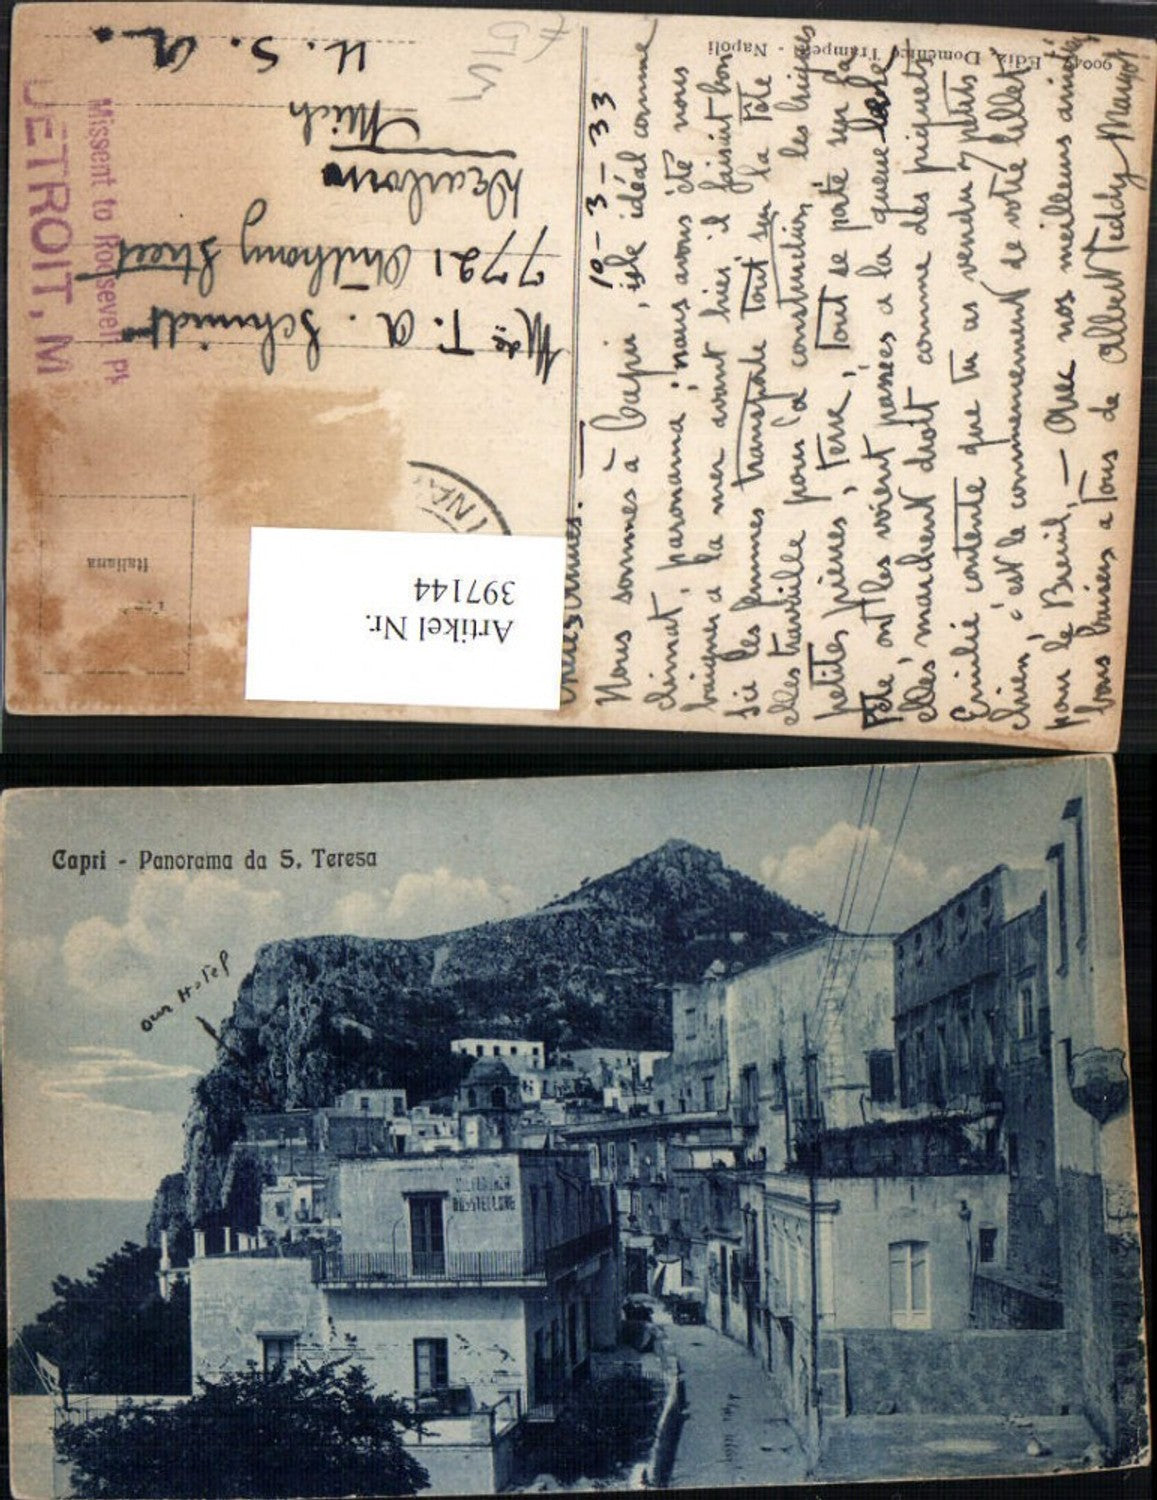 90047 Ediz. Domenico Trampetti - Napoli
10-3-33
Chères Amies. —
Nous sommes à Capri, isle idéal comme
climat, panorama; nous avons été nous
baigner a la mer avant hier il faisait bon
Ici les femmes transporte tout sur la tête
elles travaille pour la construction les briques
petites pierres, terre, tout se porte sur la
tête, ont les voient passées a la queue leole
elles marchent droit comme des piquets
Emilie contente que tu as vendu 7 petits
chien, c'est le commencement de votre billet
pour le Breuil, — Avec nos meilleurs amitiés
bons baisers a tous de Albert Teddy Margot
Mde T. A. Schmidt
7721 Anthony Street
Dearborn
Mich
U. S. A.
Missent to Roosevelt Pk
DETROIT, M
Italiana
Artikel Nr.
397144
Capri - Panorama da S. Teresa
our Hotel